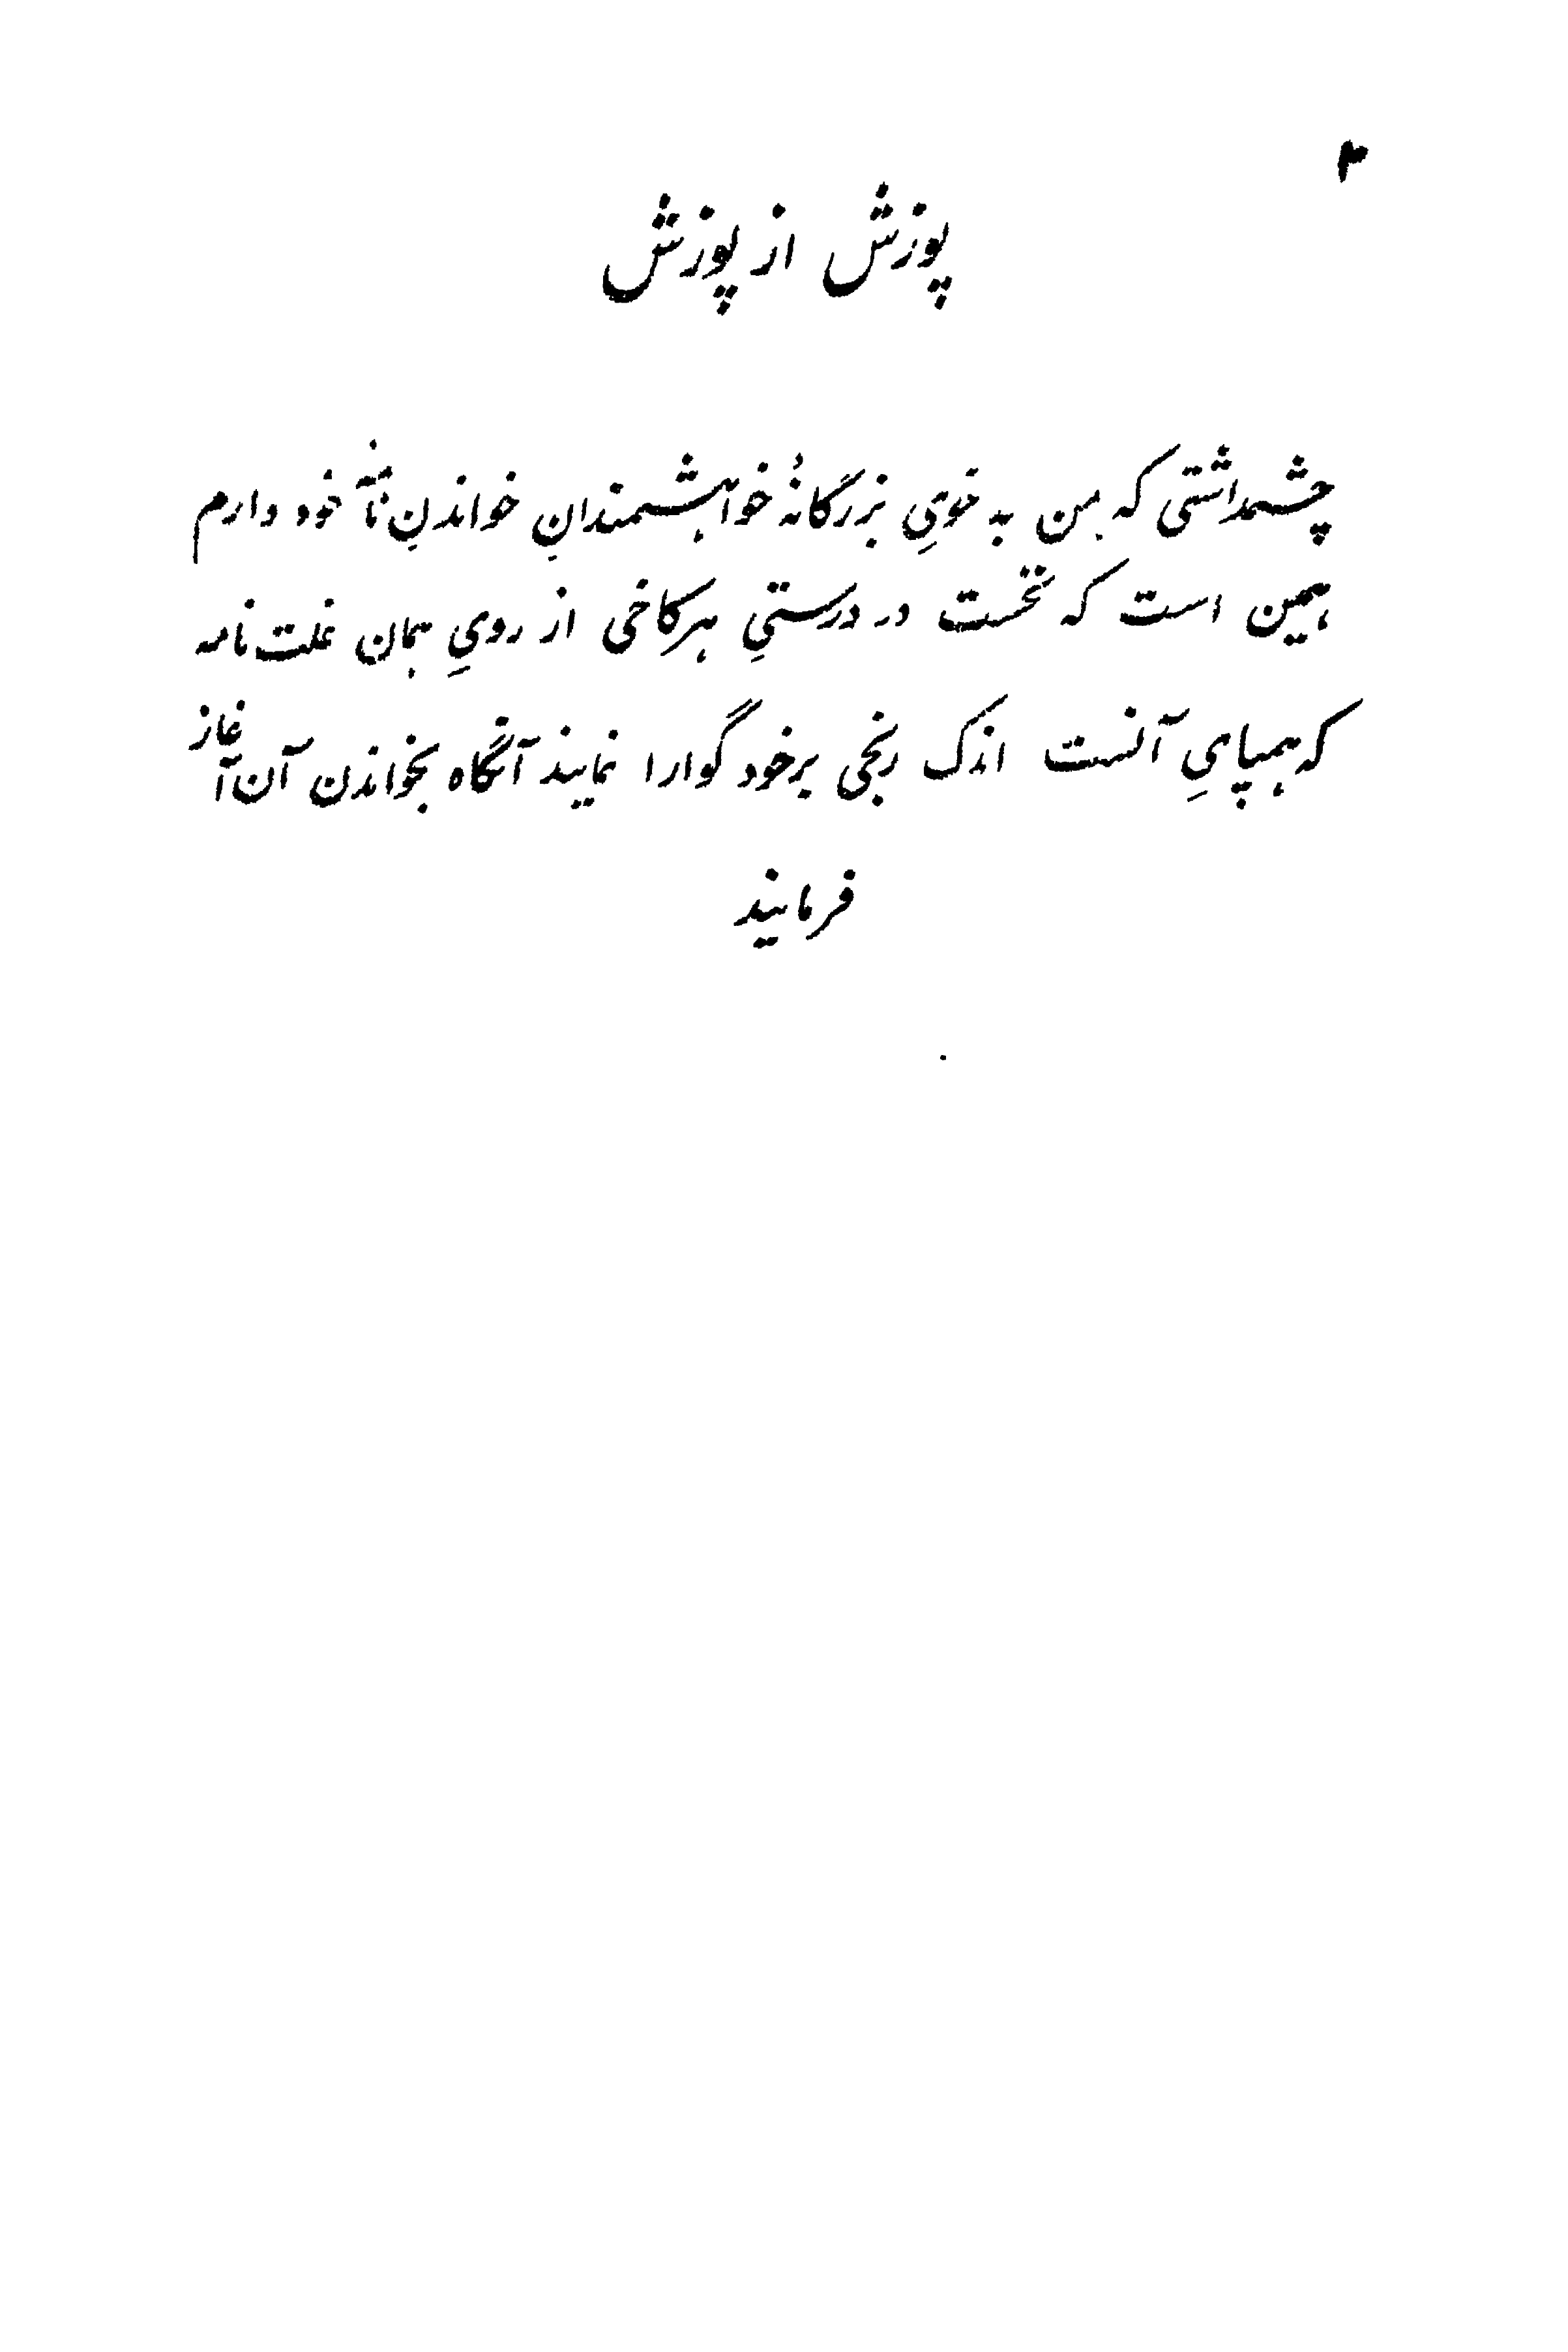 ۳
پوزش از پوزش
چشمداشتی که من به خویِ بزرگانهٔ خواهشمندانِ خواندنِ نامهٔ خود دارم
همین است که نخست در درستیِ هرکاخی از رویِ همان غلت نامه
که همپایِ آنست اندک رنجی برخود گوارا نمایند آنگاه بخواندن آن آغاز
فرمایند